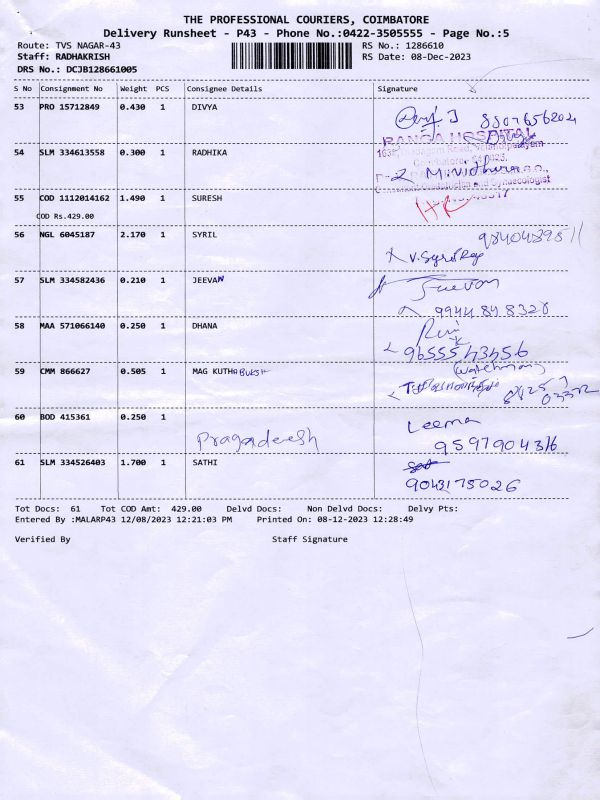 THE PROFESSIONAL COURIERS, COIMBATORE
Delivery Runsheet - P43 - Phone No.:0422-3505555 - Page No.:5
Route: TVS NAGAR-43 RS No.: 1286610
Staff: RADHAKRISH RS Date: 08-Dec-2023
DRS No.: DCJB128661005
S No Consignment No Weight PCS Consignee Details Signature
53 PRO 15712849 0.430 1 DIVYA
8807656204
RANGA HOSPITAL
54 SLM 334613558 0.300 1 RADHIKA
55 COD 1112014162 1.490 1 SURESH
COD Rs.429.00
56 NGL 6045187 2.170 1 SYRIL
57 SLM 334582436 0.210 1 JEEVAN
Jeevan
9944848328
58 MAA 571066140 0.250 1 DHANA
59 CMM 866627 0.505 1 MAG KUTHABUKSH
(Watchman)
60 BOD 415361 0.250 1 Leema
Pragadeesh 9597904316
61 SLM 334526403 1.700 1 SATHI
9043175026
Tot Docs: 61 Tot COD Amt: 429.00 Delvd Docs: Non Delvd Docs: Delvy Pts:
Entered By :MALARP43 12/08/2023 12:21:03 PM Printed On: 08-12-2023 12:28:49
Verified By Staff Signature